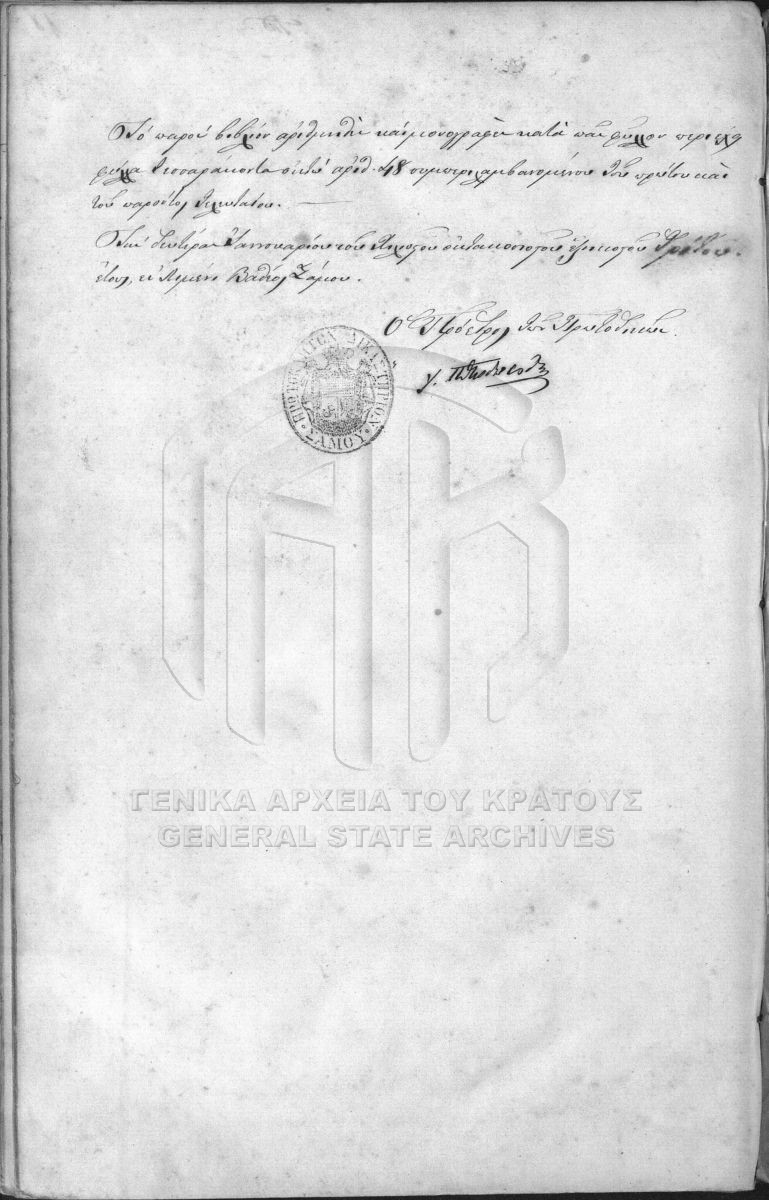 Τὸ παρὸν βιβλίον ἀριθμηθὲν καὶ μονογραφὲν κατὰ πᾶν φύλλον περιέχει
φύλλα τεσσαράκοντα ὀκτὼ ἀριθ. 48 συμπεριλαμβανομένου τοῦ πρώτου καὶ
τοῦ παρόντος τελευταίου.
Τὴν δευτέραν Ἰαννουαρίου τοῦ χιλιοστοῦ ὀκτακοσιοστοῦ ἑξηκοστοῦ τρίτου
ἔτους, ἐν Λιμένι Βαθέος Σάμου.
Ὁ Πρόεδρος τῶν Πρωτοδικῶν
ΠΡΩΤΟΒΑΘΜΙΟΝ ΔΙΚΑΣΤΗΡΙΟΝ
ΣΑΜΟΥ
ΓΕΝΙΚΑ ΑΡΧΕΙΑ ΤΟΥ ΚΡΑΤΟΥΣ
GENERAL STATE ARCHIVES